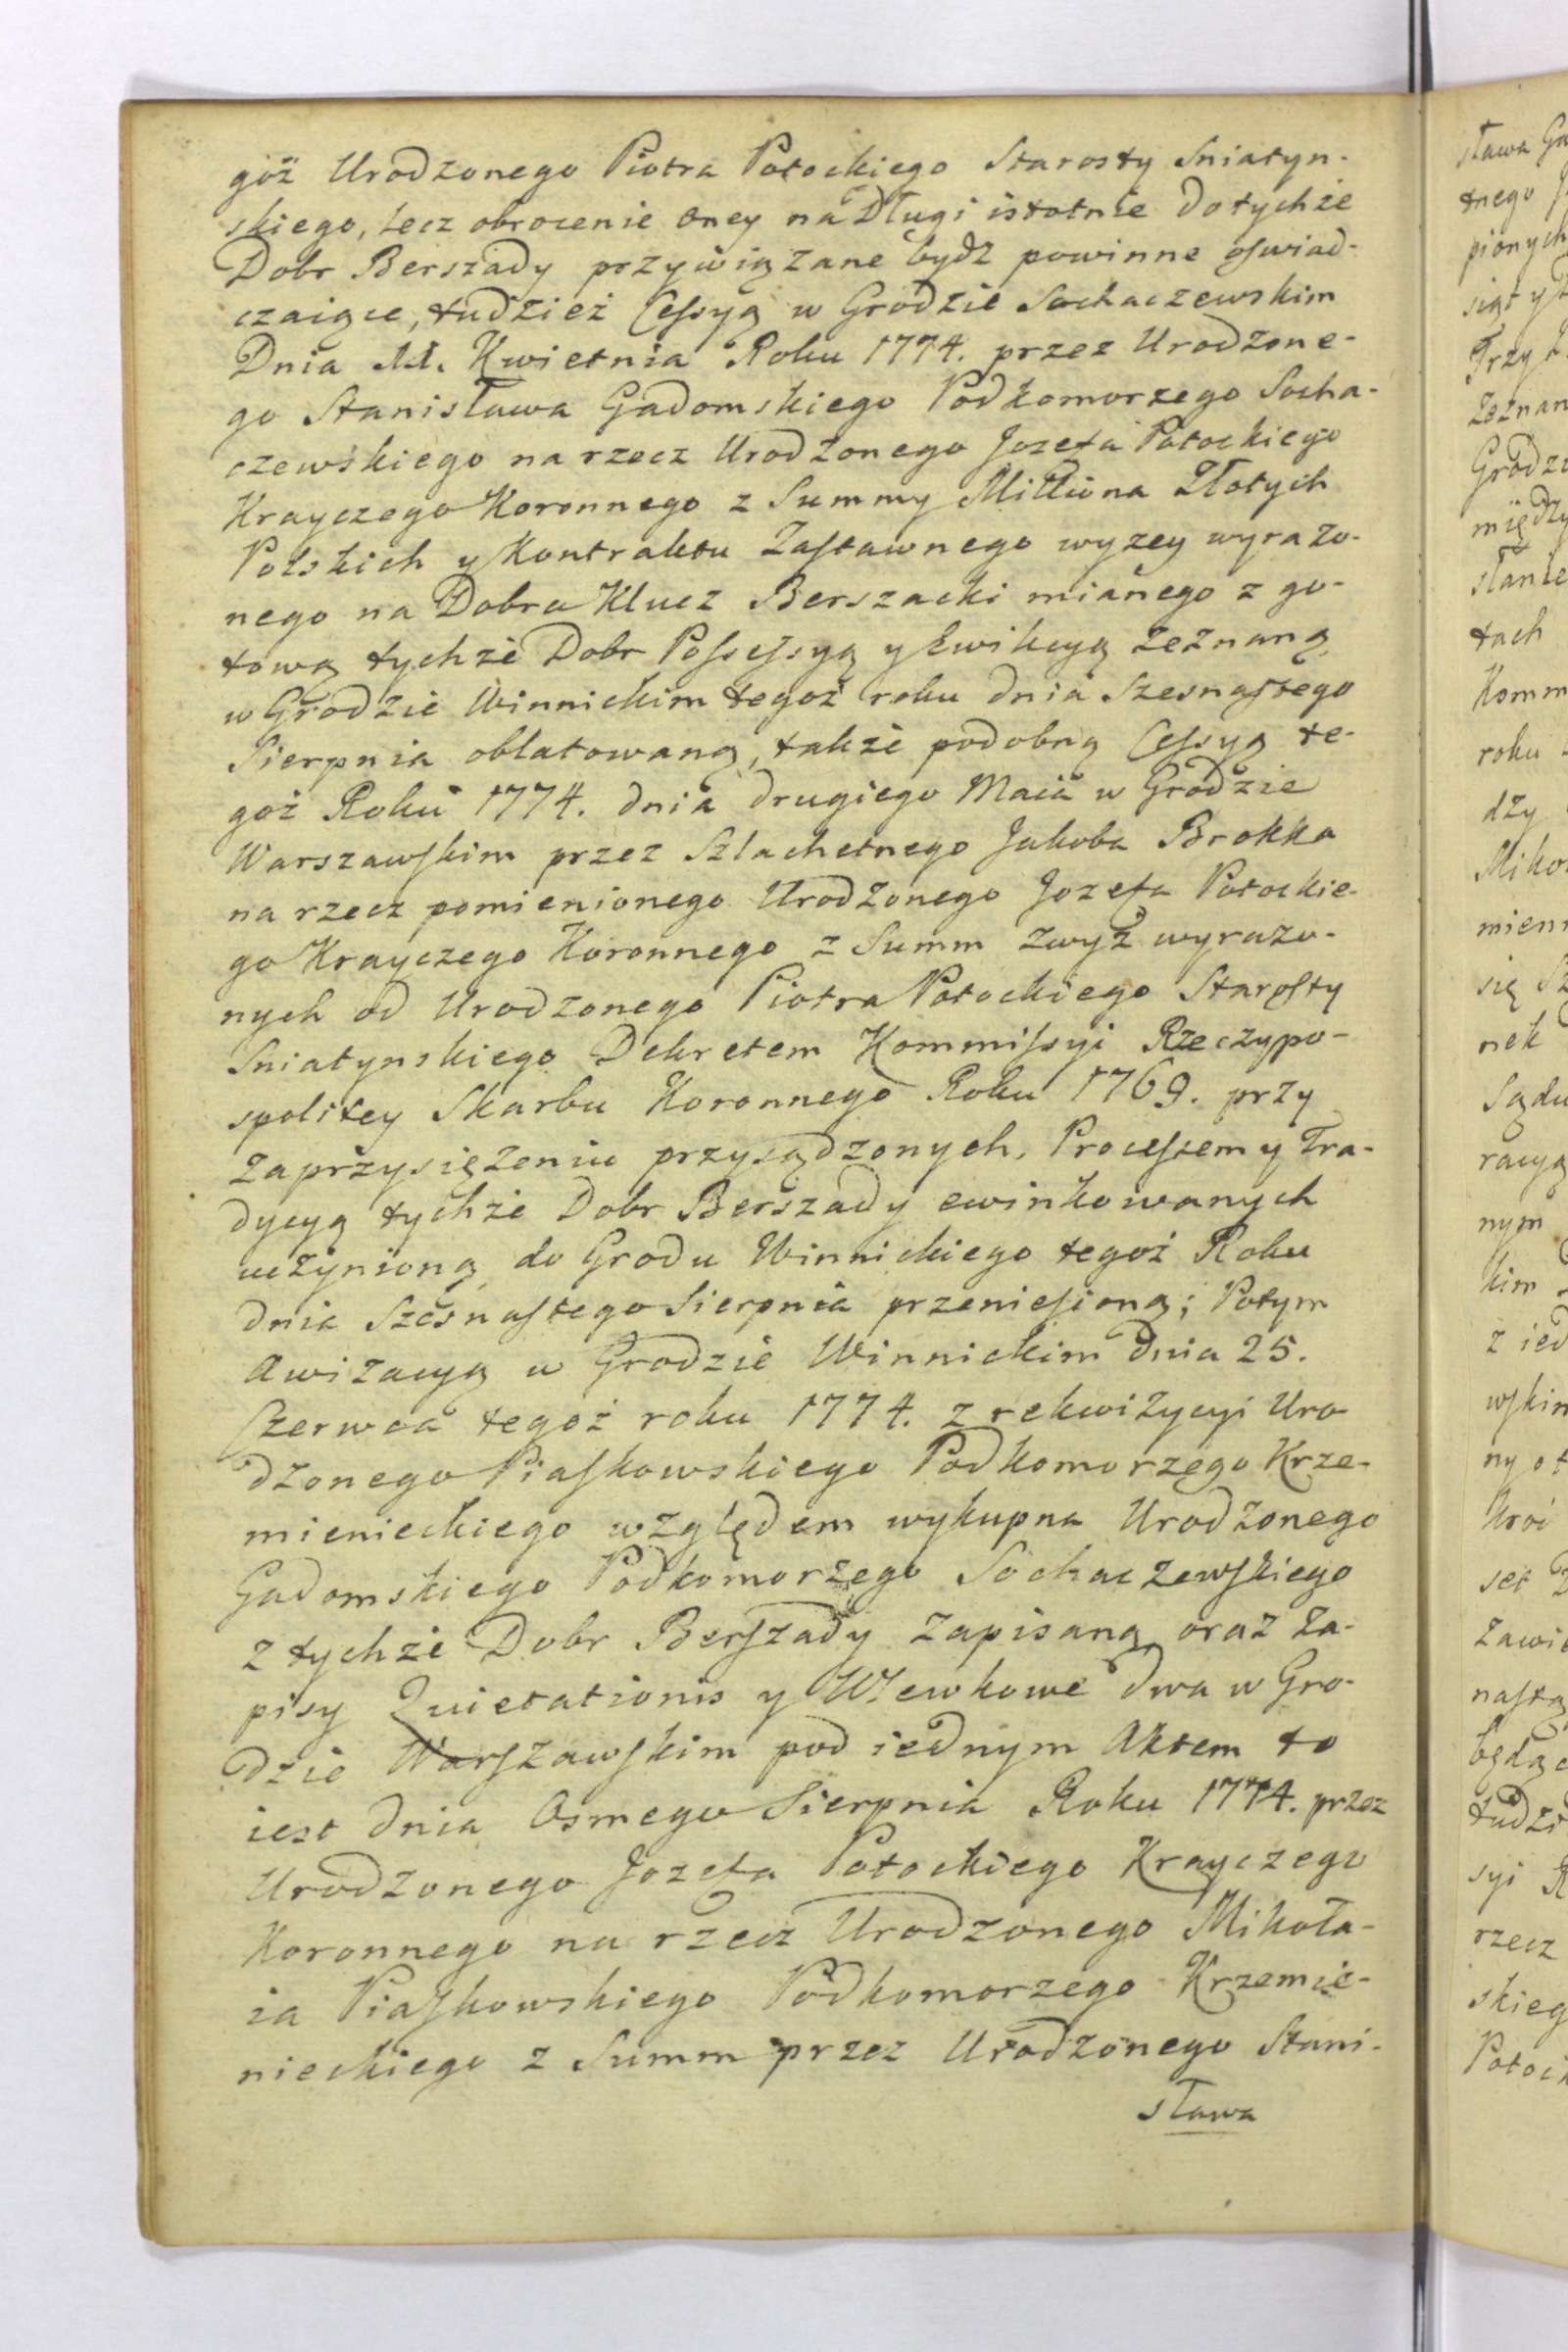 goż Urodzonego Piotra Potockiego Starosty Sniatyn-
skiego, lecz obrocenie oney na Długi istotnie do tychże
Dobr Berszady przywiązane bydź powinne oswiad-
czaiące, tudzież Cessyą w Grodzie Sochaczewskim
Dnia 11. Kwietnia Roku 1774. przez Urodzone-
go Stanisława Gadomskiego Podkomorzego Socha-
czewskiego na rzecz Urodzonego Jozefa Potockiego
Krayczego Koronnego z Summy Milliona Złotych
Polskich y Kontraktu Zastawnego wyzey wyrażo-
nego na Dobra Klucz Berszacki mianego z go-
tową tychże Dobr Possessyą y Ewikcyą zeznaną
w Grodzie Winnickim tegoż roku dnia szesnastego
Sierpnia oblatowaną, także podobną Cessyą te-
goż Roku 1774. dnia drugiego Maia w Grodzie
Warszawskim przez Szlachetnego Jakoba Brokka
na rzecz pomienionego Urodzonego Jozefa Potockie-
go Krayczego Koronnego z Summ zwyż wyrażo-
nych od Urodzonego Piotra Potockiego Starosty
Sniatynskiego Dekretem Kommissyi Rzeczypo-
spolitey Skarbu Koronnego Roku 1769. przy
zaprzysiężeniu przysądzonych, Processem y Tra-
dycyą tychże Dobr Berszady ewinkowanych
uczynioną do Grodu Winnickiego tegoż Roku
dnia Szesnastego Sierpnia przeniesioną; Potym
Awizacyą w Grodzie Winnickim dnia 25.
Czerwca tegoż roku 1774. z rekwizycyi Uro
dzonego Piaskowskiego Podkomorzego Krze-
mienieckiego względem wykupna Urodzonego
Gadomskiego Podkomorzego Sochaczewskiego
z tychże Dobr Berszady zapisaną oraz Za-
pisy Quietationis y Wlewkowe dwa w Gro-
dzie Warszawskim pod iednym Aktem to
iest dnia Osmego Sierpnia Roku 1774. przez
Urodzonego Jozefa Potockiego Krayczego
Koronnego na rzecz Urodzonego Mikoła-
ia Piaskowskiego Podkomorzego Krzemie-
nieckiego z Summ przez Urodzonego Stani-
sława